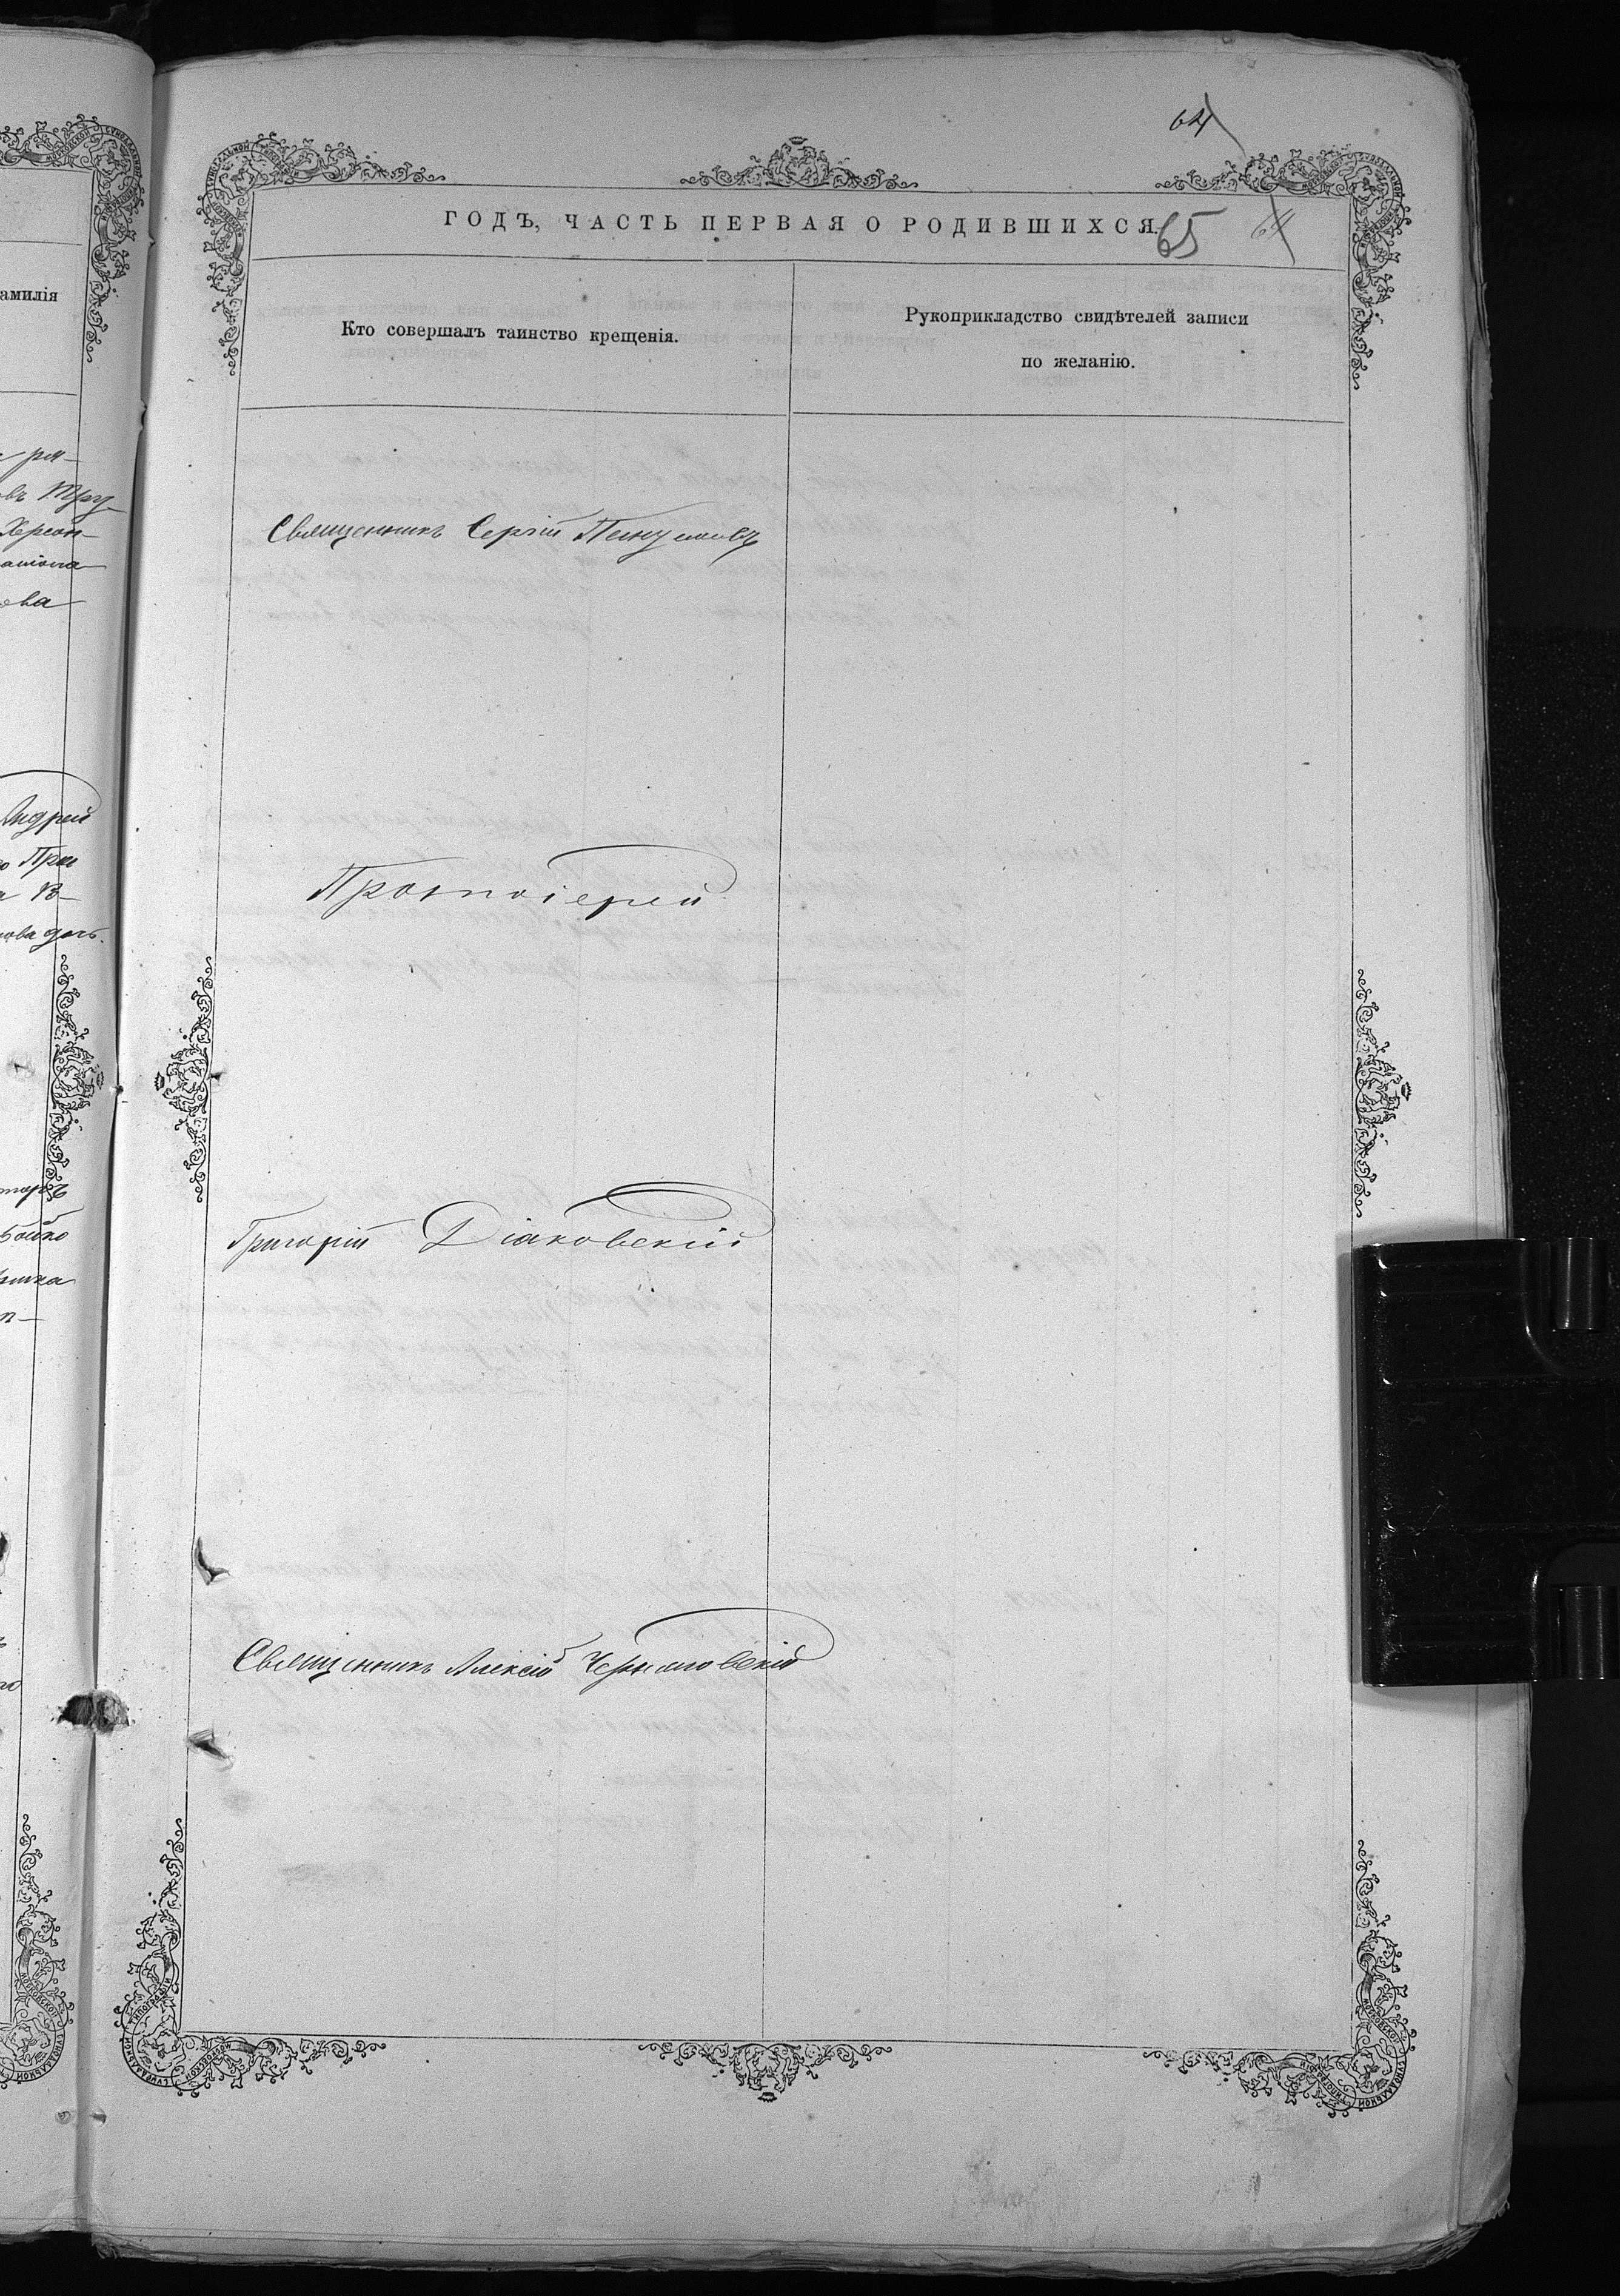 64
ГОДЪ, ЧАСТЬ ПЕРВАЯ О РОДИВШИХСЯ.
65 64
амилія
Кто совершалъ таинство крещенія.
Рукоприкладство свидѣтелей записи
по желанію.
Херсон-
ова
Священникъ Сергій
Андрей
Протоіерей
Григорій Діаковскій
Священникъ Алексій Черняховскій